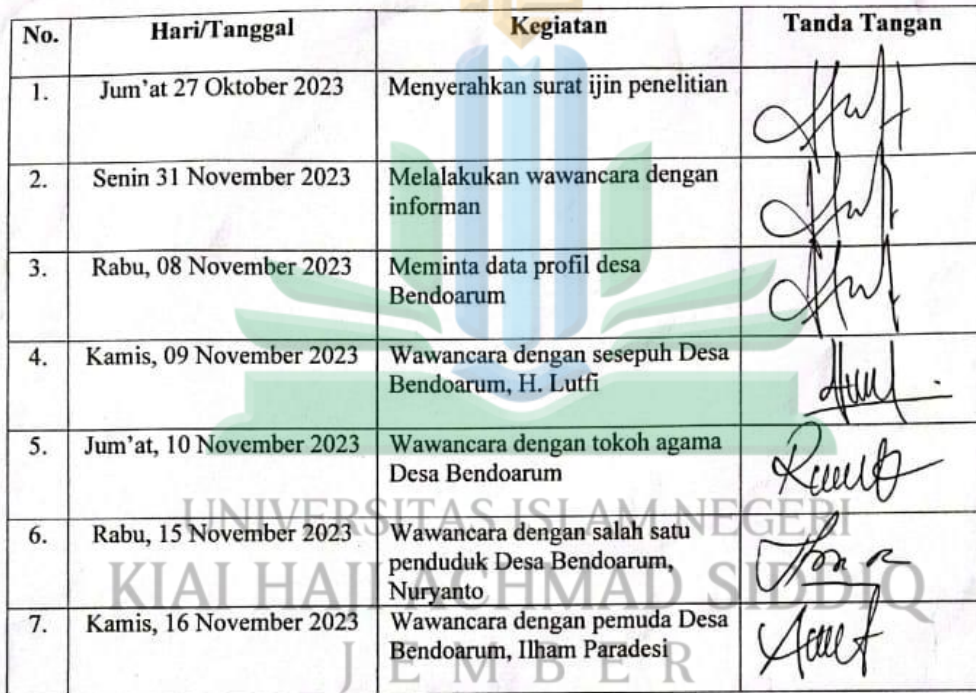 No. Hari/Tanggal Kegiatan Tanda Tangan
1. Jum'at 27 Oktober 2023 Menyerahkan surat ijin penelitian
2. Senin 31 November 2023 Melalakukan wawancara dengan
informan
3. Rabu, 08 November 2023 Meminta data profil desa
Bendoarum
4. Kamis, 09 November 2023 Wawancara dengan sesepuh Desa
Bendoarum, H. Lutfi
5. Jum'at, 10 November 2023 Wawancara dengan tokoh agama
Desa Bendoarum
UNIVERSITAS ISLAM NEGERI
6. Rabu, 15 November 2023 Wawancara dengan salah satu
penduduk Desa Bendoarum,
Nuryanto
KIAI HAJI ACHMAD SIDDIQ
7. Kamis, 16 November 2023 Wawancara dengan pemuda Desa
Bendoarum, Ilham Paradesi
JEMBER